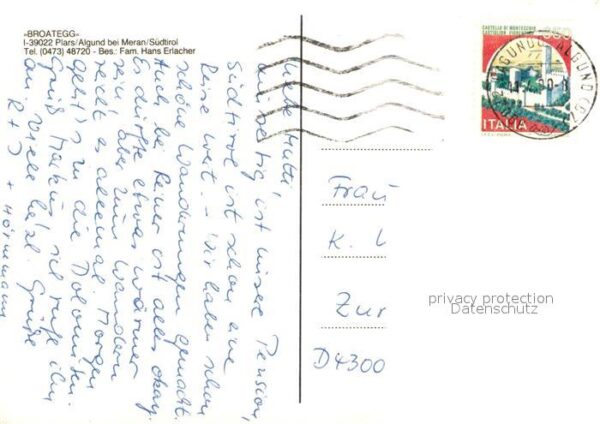 »BROATEGG«
I-39022 Plars/Algund bei Meran/Südtirol
Tel. (0473) 48720 - Bes.: Fam. Hans Erlacher
Liebe Mutti,
ist unsere Pension,
Südtirol ist schon eine
Reise wert. – Wir haben schon
schöne Wanderungen gemacht.
Auch bei Reiner ist alles okay.
Es dürfte etwas wärmer
sein, aber zum Wandern
reicht es allemal. Morgen
geht's in die Dolomiten.
Gruß Markus, ich rufe ihn
an. Viele herzl. Grüße
R + J
CASTELLO DI MONTECCHIO
CASTIGLION FIORENTINO
350
ITALIA
LAGUNDO ALGUND (BZ)
Frau
K. L
Zur
D4300
privacy protection
Datenschutz